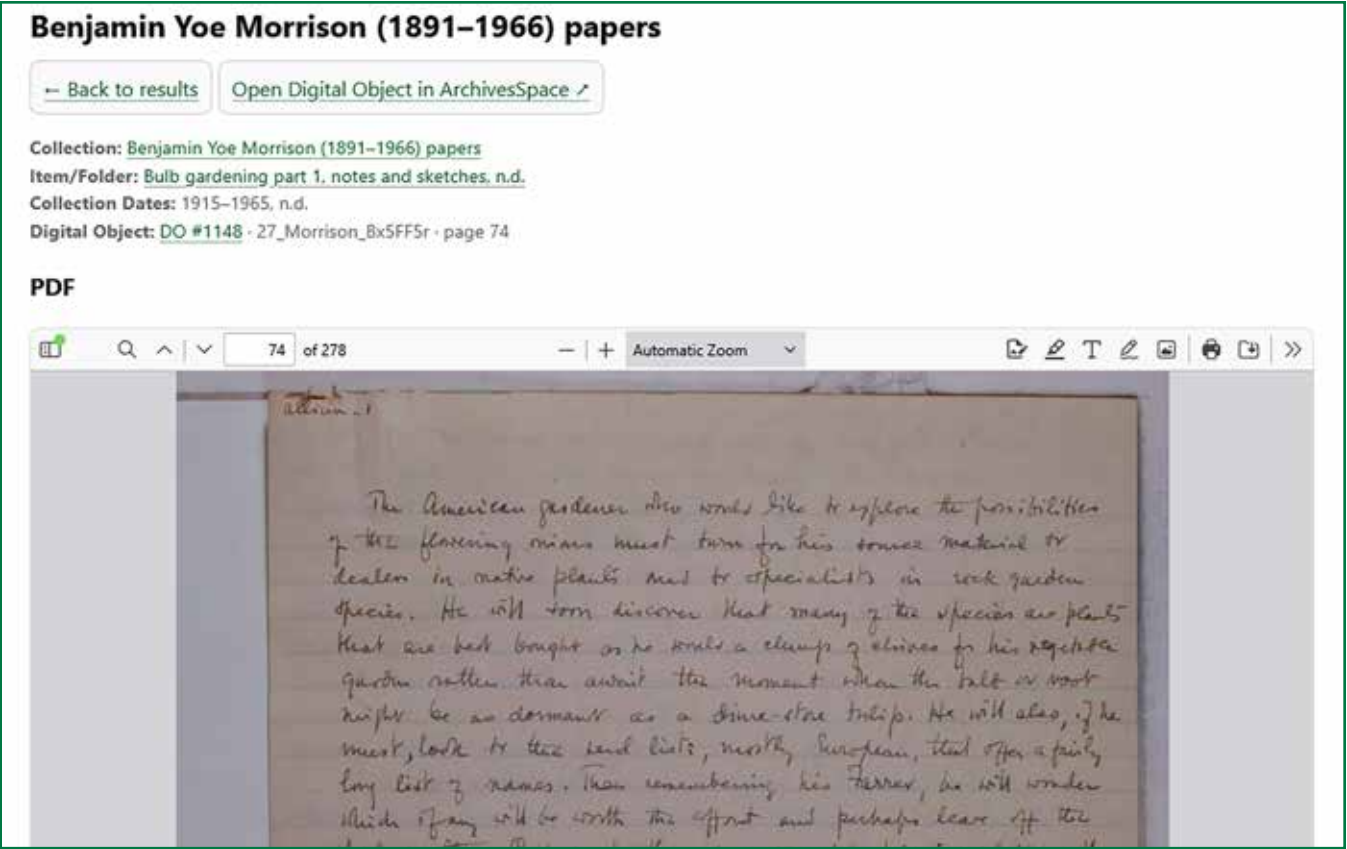 Benjamin Yoe Morrison (1891–1966) papers
← Back to results
Open Digital Object in ArchivesSpace ↗
Collection: Benjamin Yoe Morrison (1891–1966) papers
Item/Folder: Bulb gardening part 1, notes and sketches, n.d.
Collection Dates: 1915–1965, n.d.
Digital Object: DO #1148 · 27_Morrison_Bx5FF5r · page 74
PDF
74 of 278
Automatic Zoom
allium - 1
The American gardener who would like to explore the possibilities
of the flowering onions must turn for his source material to
dealers in native plants and to specialists in rock garden
species. He will soon discover that many of the species are plants
that are best bought as he would a clump of chives for his vegetable
garden rather than await the moment when the bulb or root
might be as dormant as a dime-store tulip. He will also, if he
must, look to the seed lists, mostly European, that offer a fairly
long list of names. Then remembering his Farrer, he will wonder
which if any will be worth the effort and perhaps leave off the